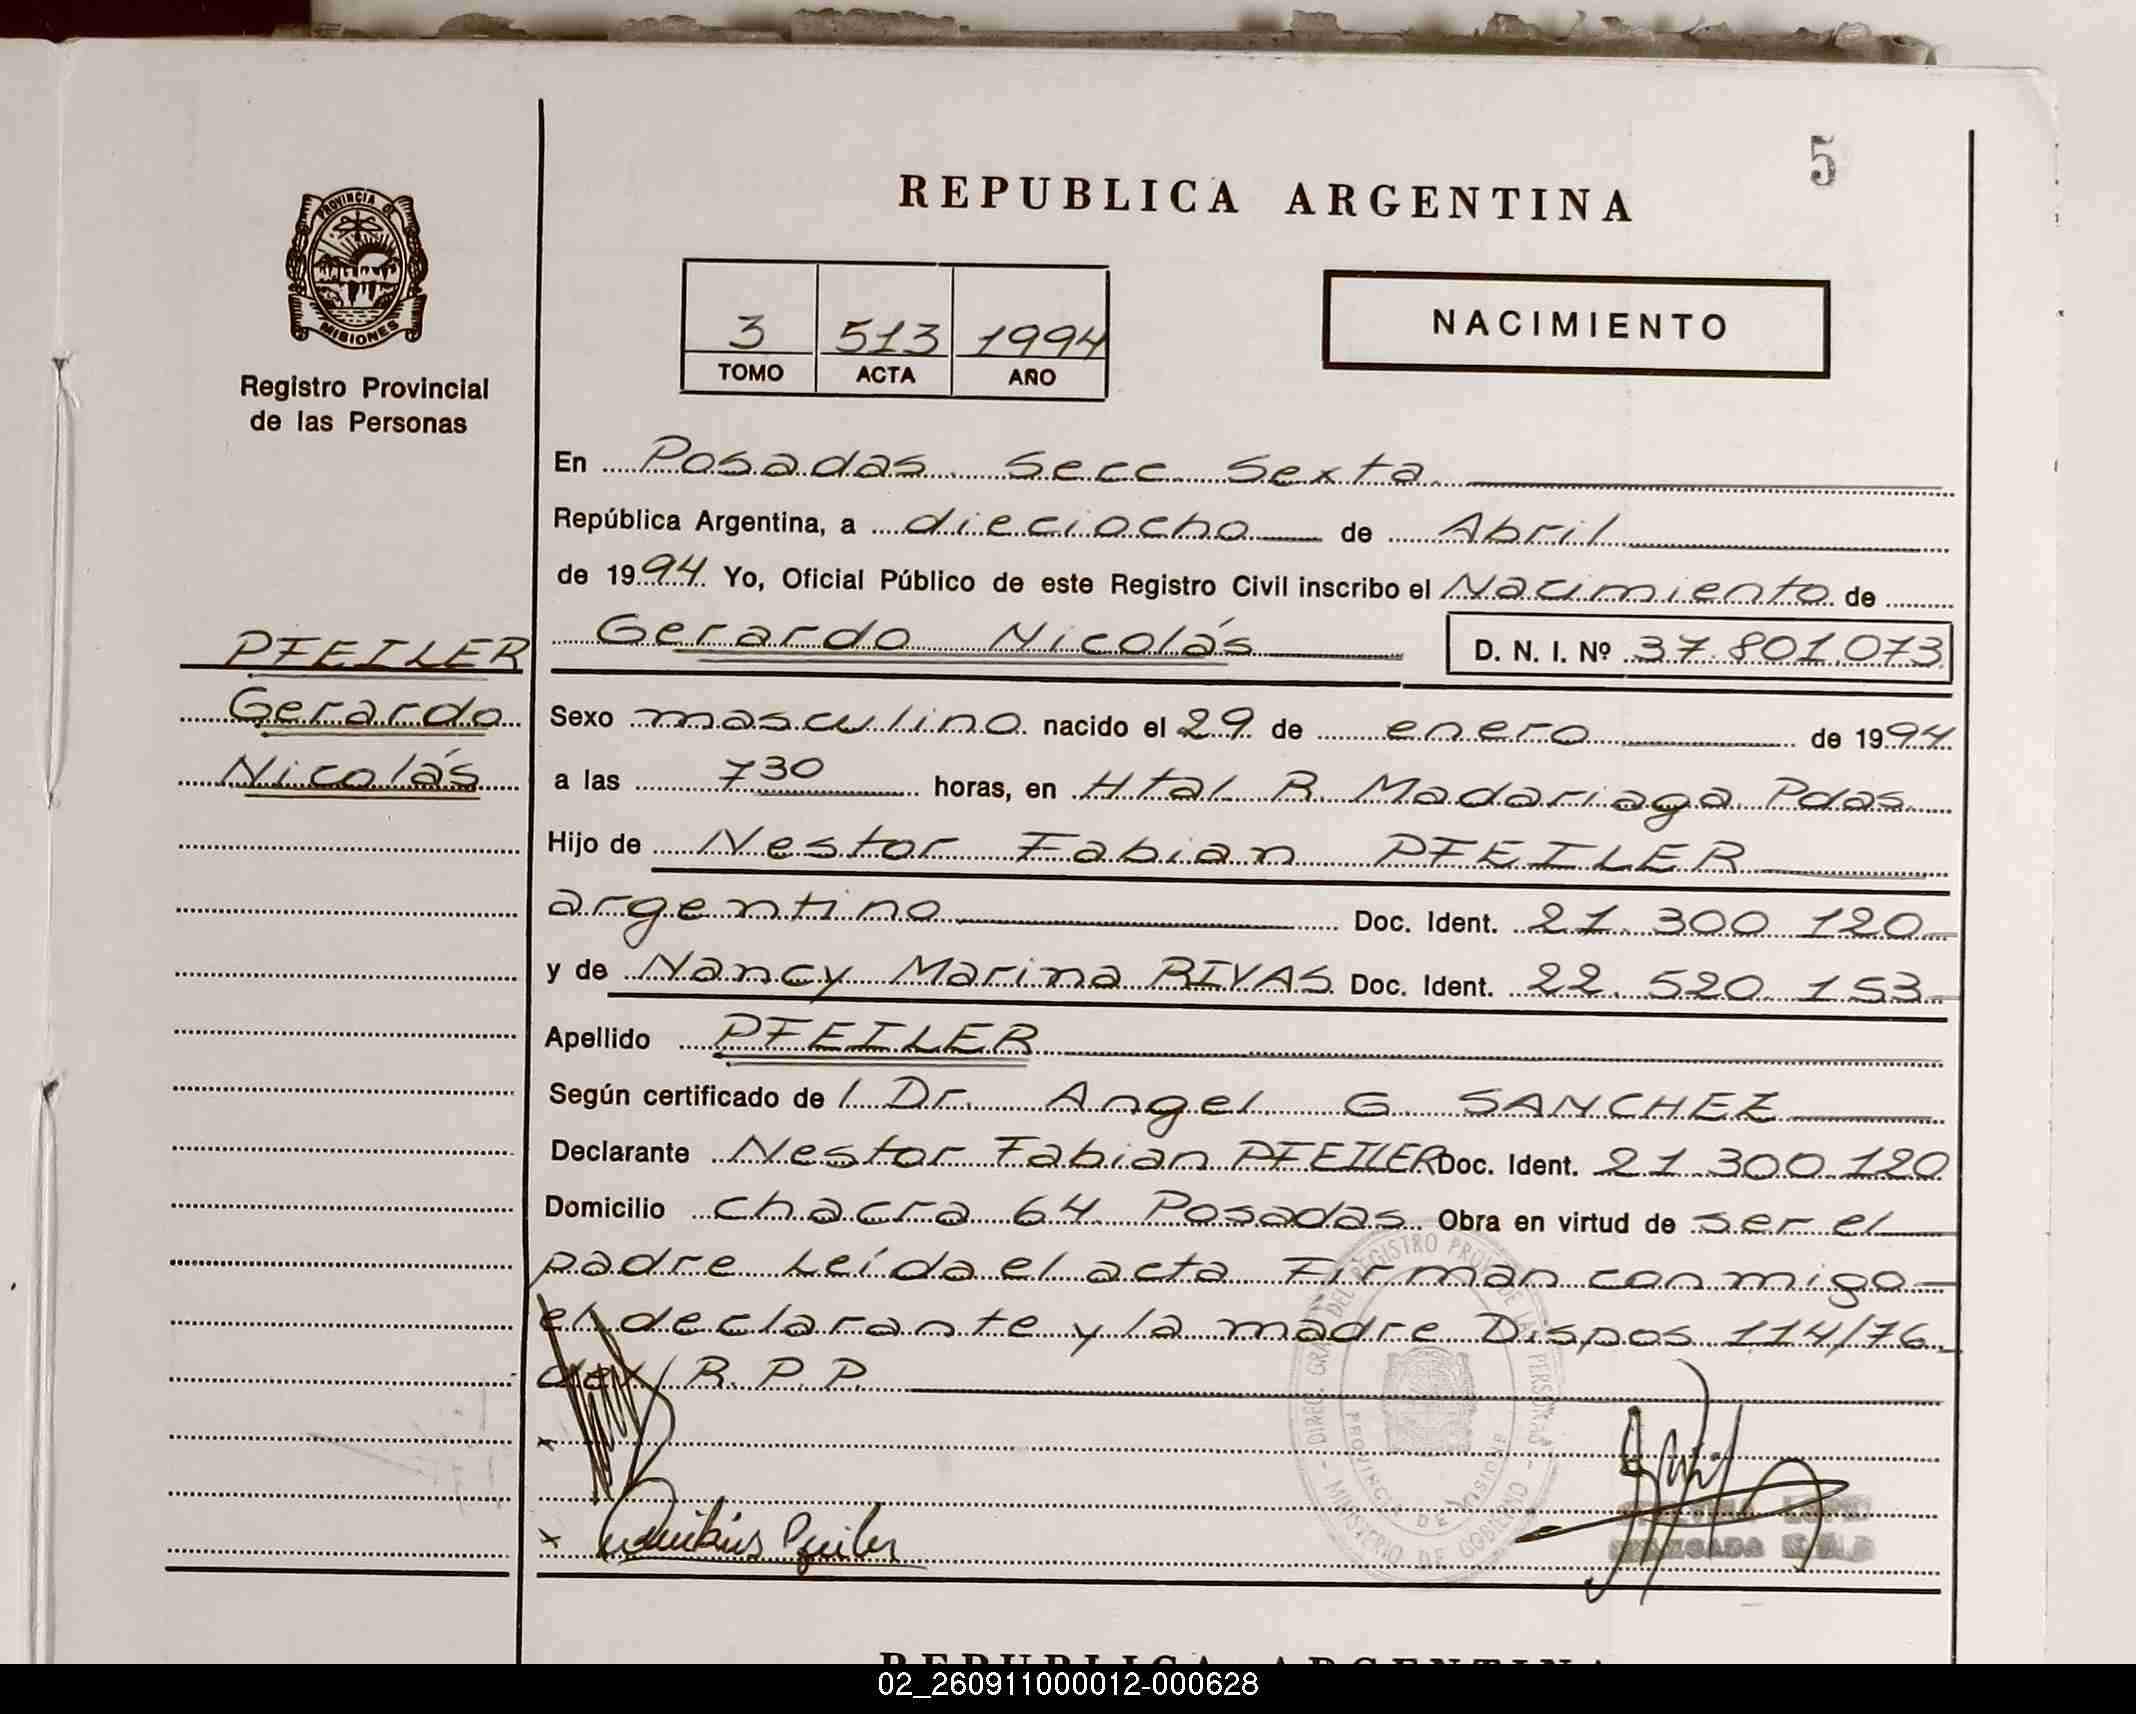 5
REPUBLICA ARGENTINA
PROVINCIA DE
MISIONES
Registro Provincial
de las Personas
3 513 1994
TOMO ACTA AÑO
NACIMIENTO
En Posadas Secc Sexta
República Argentina, a dieciocho de Abril
de 1994 Yo, Oficial Público de este Registro Civil inscribo el Nacimiento de
PFEILER
Gerardo
Nicolás
Gerardo Nicolás D. N. I. Nº 37.801.073
Sexo masculino nacido el 29 de enero de 1994
a las 730 horas, en Htal R. Madariaga Pdas
Hijo de Nestor Fabian PFEILER
argentino Doc. Ident. 21.300 120
y de Nancy Marina RIVAS Doc. Ident. 22.520 153
Apellido PFEILER
Según certificado de l Dr. Angel G. SANCHEZ
Declarante Nestor Fabian PFEILER Doc. Ident. 21.300.120
Domicilio chacra 64 Posadas Obra en virtud de ser el
padre Leída el acta Firman conmigo
el declarante y la madre Dispos 114/76
del R. P. P.
DIREC. GRAL DEL REGISTRO PROV. DE LAS PERSONAS
PROVINCIA DE MISIONES
MINISTERIO DE GOBIERNO
REPUBLICA ARGENTINA
02_260911000012-000628